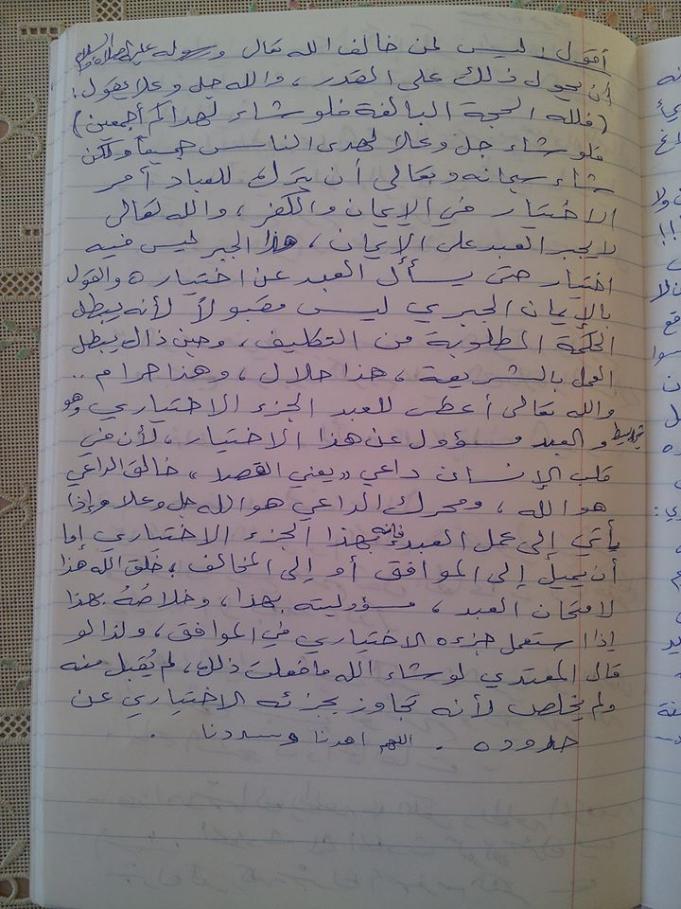 أقول: ليس لمن خالف الله تعالى ورسوله عليه الصلاة والسلام
أن يحيل ذلك على القدر، والله جل وعلا يقول:
(فلله الحجة البالغة فلو شاء لهداكم أجمعين)
فلو شاء جل وعلا لهدى الناس جميعا ولكن
شاء سبحانه وتعالى أن يترك للعباد أمر
الاختيار في الإيمان والكفر، والله تعالى
لا يجبر العبد على الإيمان، هذا الجبر ليس فيه
اختيار حتى يسأل العبد عن اختياره والقول
بالإيمان الجبري ليس مقبولاً لأنه يبطل
الحكمة المطلوبة من التكليف، وحين ذاك يبطل
العمل بالشريعة، هذا حلال، وهذا حرام ..
والله تعالى أعطى للعبد الجزء الاختياري وهو
بسيط والعبد مسؤول عن هذا الاختيار، لأن في
قلب الإنسان داعي "يعني القصد، خالق الداعي
هو الله، ومحرك الداعي هو الله جل وعلا وإذا
يأتي إلى عمل العبد فإنه بهذا الجزء الاختياري إما
أن يميل إلى الموافق أو إلى المخالف، خلق الله هذا
لامتحان العبد، مسؤوليته بهذا، وخلاصُهُ بهذا
إذا استعمل جزءه الاختياري في الموافق، ولذا لو
قال المعتدي لو شاء الله ما فعلت ذلك، لم يُقبل منه
ولم يخلص لأنه تجاوز بجزئه الاختياري عن
حدوده . اللهم اهدنا وسددنا .